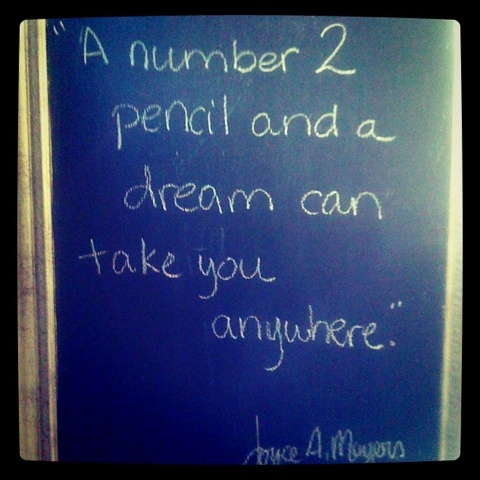 "A number 2
pencil and a
dream can
take you
anywhere."
Joyce A. Meyers